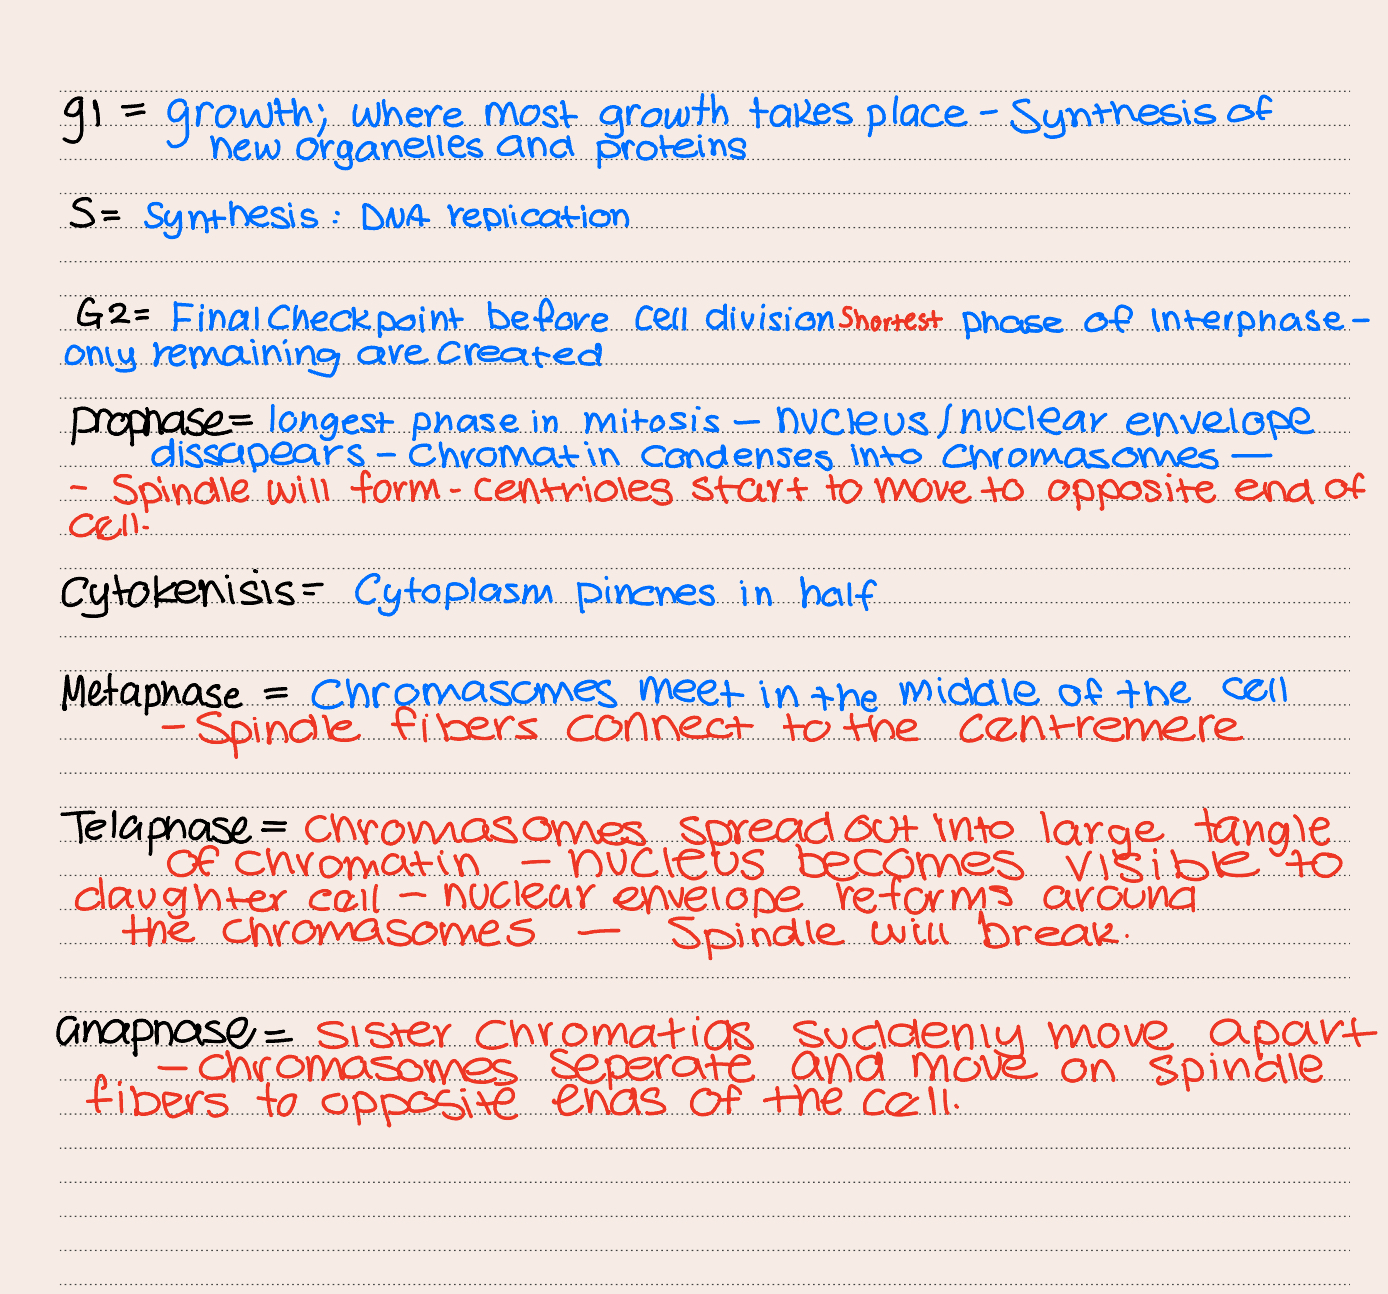 g1 = growth; where most growth takes place - Synthesis of
new organelles and proteins
S= Synthesis: DNA replication
G2= Final Checkpoint before cell division Shortest phase of Interphase-
only remaining are created
prophase= longest phase in mitosis - nucleus/nuclear envelope
dissapears - chromatin condenses into chromasomes -
- Spindle will form - centrioles start to move to opposite end of
cell.
Cytokenisis= Cytoplasm pinches in half
Metaphase = Chromasomes meet in the middle of the cell
- Spindle fibers connect to the centremere
Telaphase= chromasomes spread out into large tangle
of chromatin - nucleus becomes visible to
daughter cell - nuclear envelope reforms around
the chromasomes - Spindle will break.
anaphase= sister chromatids suddenly move apart
- chromasomes seperate and move on spindle
fibers to opposite ends of the cell.